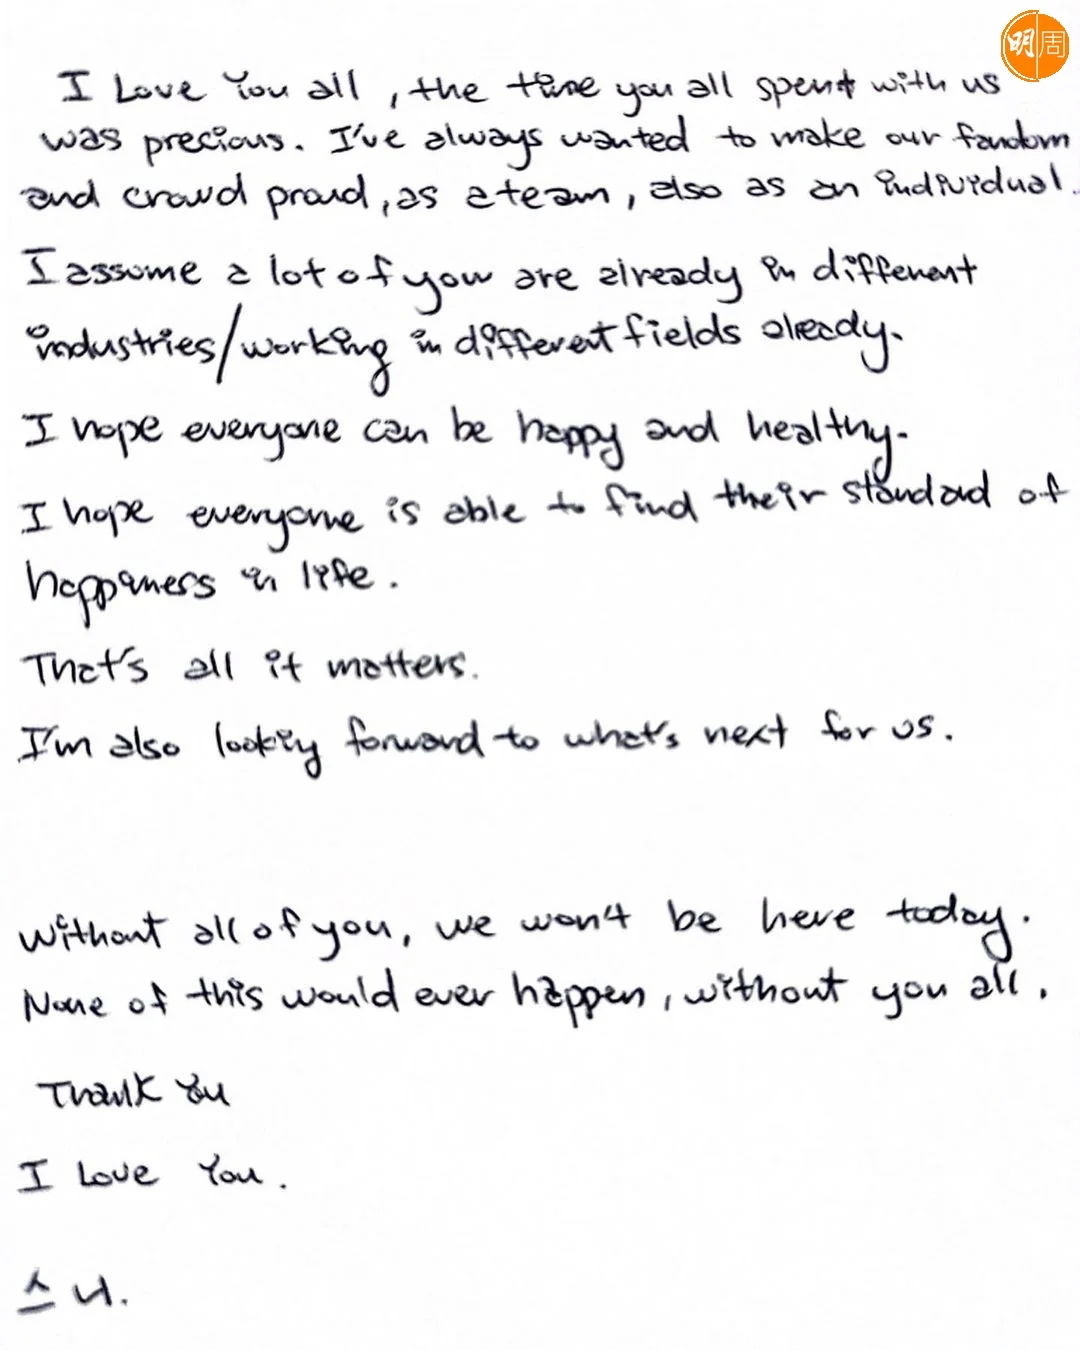 明周
I Love You all, the time you all spent with us
was precious. I've always wanted to make our fandom
and crowd proud, as a team, also as an individual.
I assume a lot of you are already in different
industries/working in different fields already.
I hope everyone can be happy and healthy.
I hope everyone is able to find their standard of
happiness in life.
That's all it matters.
I'm also looking forward to what's next for us.
Without all of you, we won't be here today.
None of this would ever happen, without you all.
Thank You
I Love You.
스니.